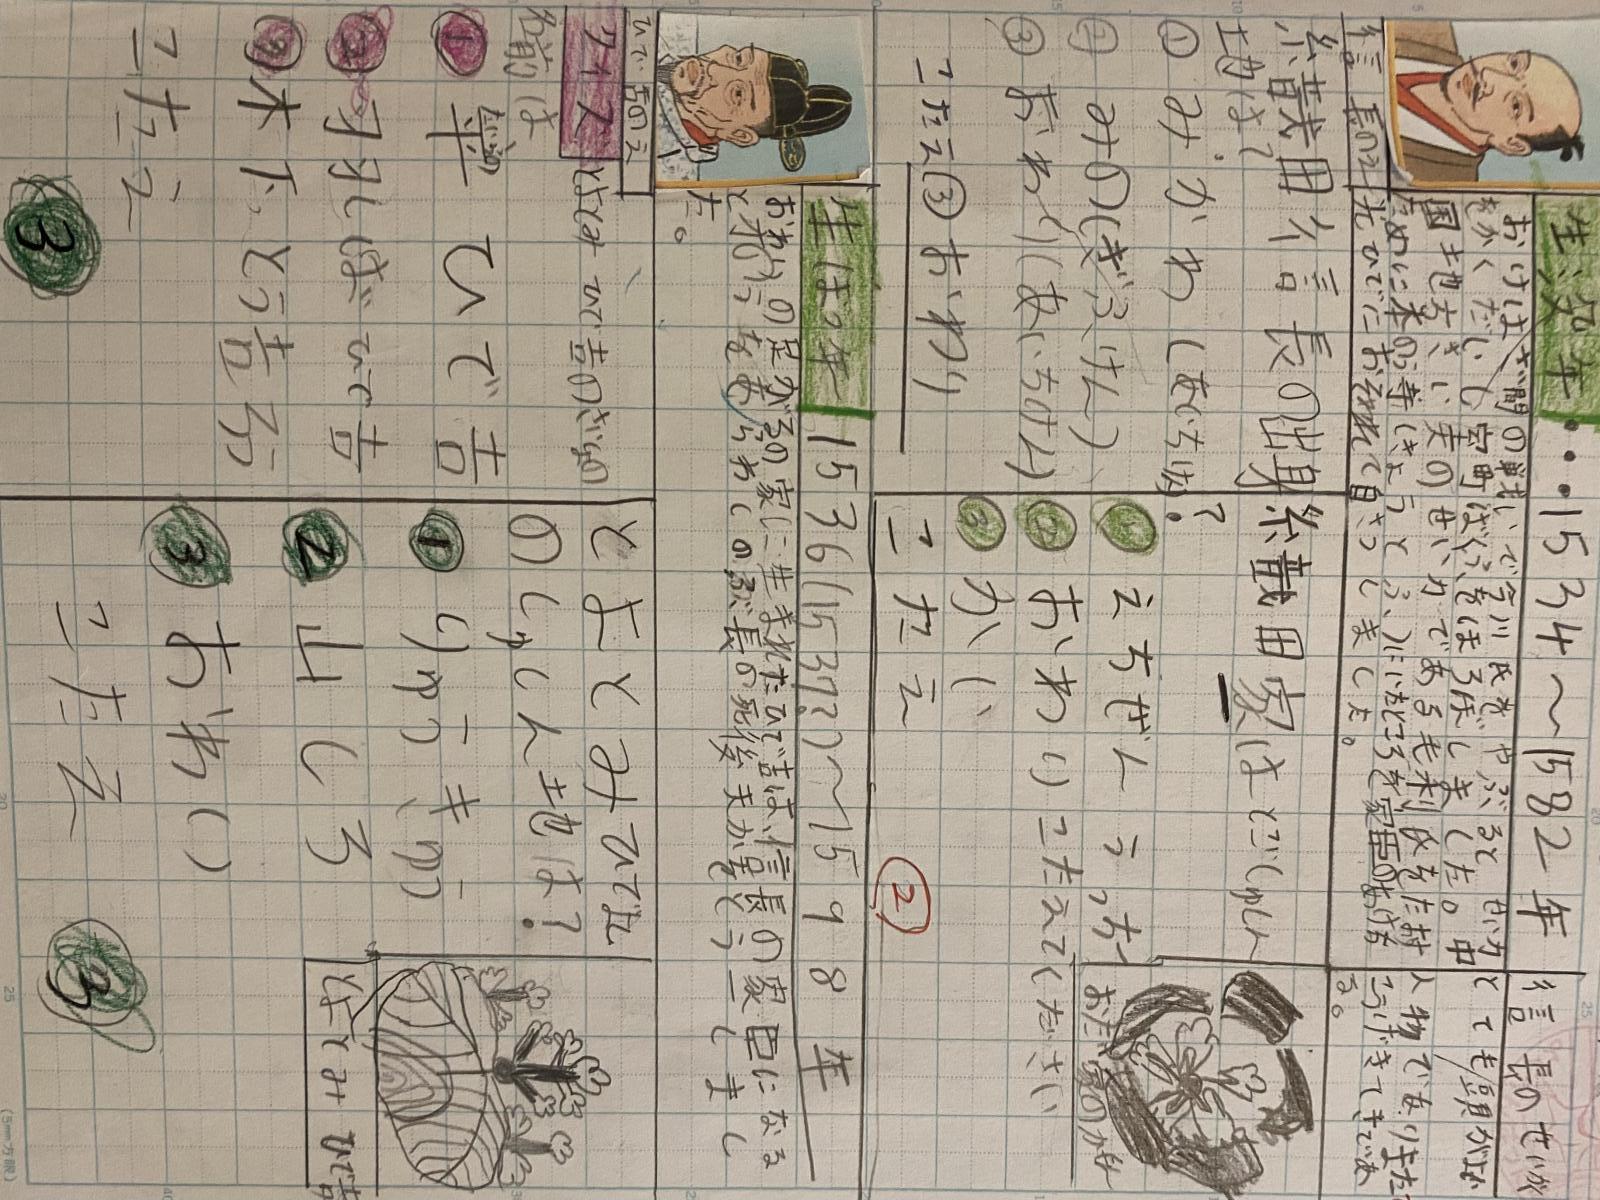 生没年・・・1534〜1582年
おけはざ間の戦いで今川氏をやぶると
をかくだいし室町ばくふをほろぼしました。中
国地方さい実の せい力である毛利氏をた村
ために本のう寺(きょうと ふ)に
光ひでにおそわれて自さつしました。
信長のせいかく
とても頭がよ
人物であり
こうげきてきであ
る。
信長の絵
織田信長の出身
地は?
① みかわ(あいち県)
② みの(ぎふけん)
③ おわり(あいちけん)
こたえ③おわり
織田家はどこしゅしん
?
① えちぜん
② おわり こたえてください
③ かい
こたえ
②
おだ家のかもん
生ぼつ年 1536(1537?)〜1598年
おわりの足がるの家に生まれたひで吉は、信長の家臣になる
と才のうをあらわしのぶ長の死後天か統とういしまし
た。
ひで吉の絵
クイズ とよとみ ひで吉のさいしょの
名前は
① 豊 ひで吉
② 羽しばひで吉
③ 木下とう吉ろう
こたえ
③
とよとみひで吉
のしゅしん地は?
① りゅうきゅう
② 山しろ
③ おわり
こたえ
③
とよとみ ひで吉
(5mm方眼)